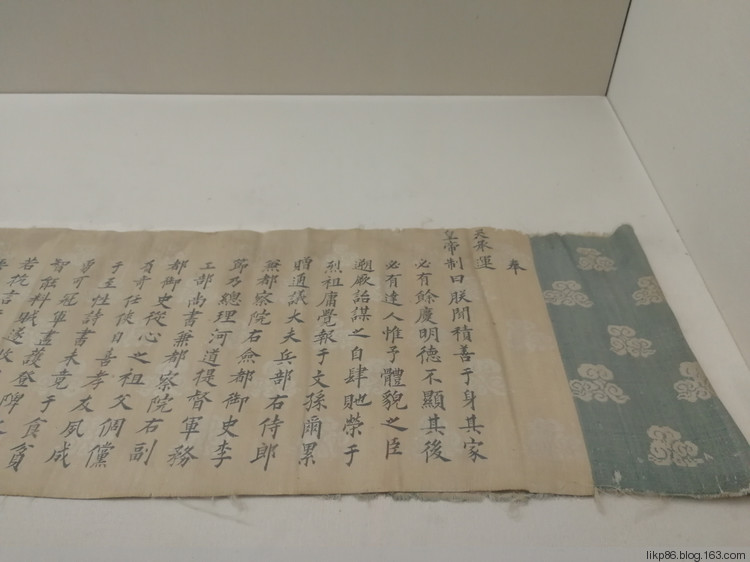 奉
天承運
皇帝制曰朕聞積善于身其家
必有餘慶明德不顯其後
必有達人惟予體貌之臣
遡厥詒謀之自肆貤榮于
烈祖庸覺報于文孫爾累
贈通議大夫兵部右侍郎
兼都察院右僉都御史李
節乃總理河道提督軍務
工部尚書兼都察院右副
都御史從心之祖父倜儻
有奇任俠日善孝友夙成
于至性詩書未竟于食貧
勇可冠軍
智能料賊盡護登陴
若
likp86.blog.163.com